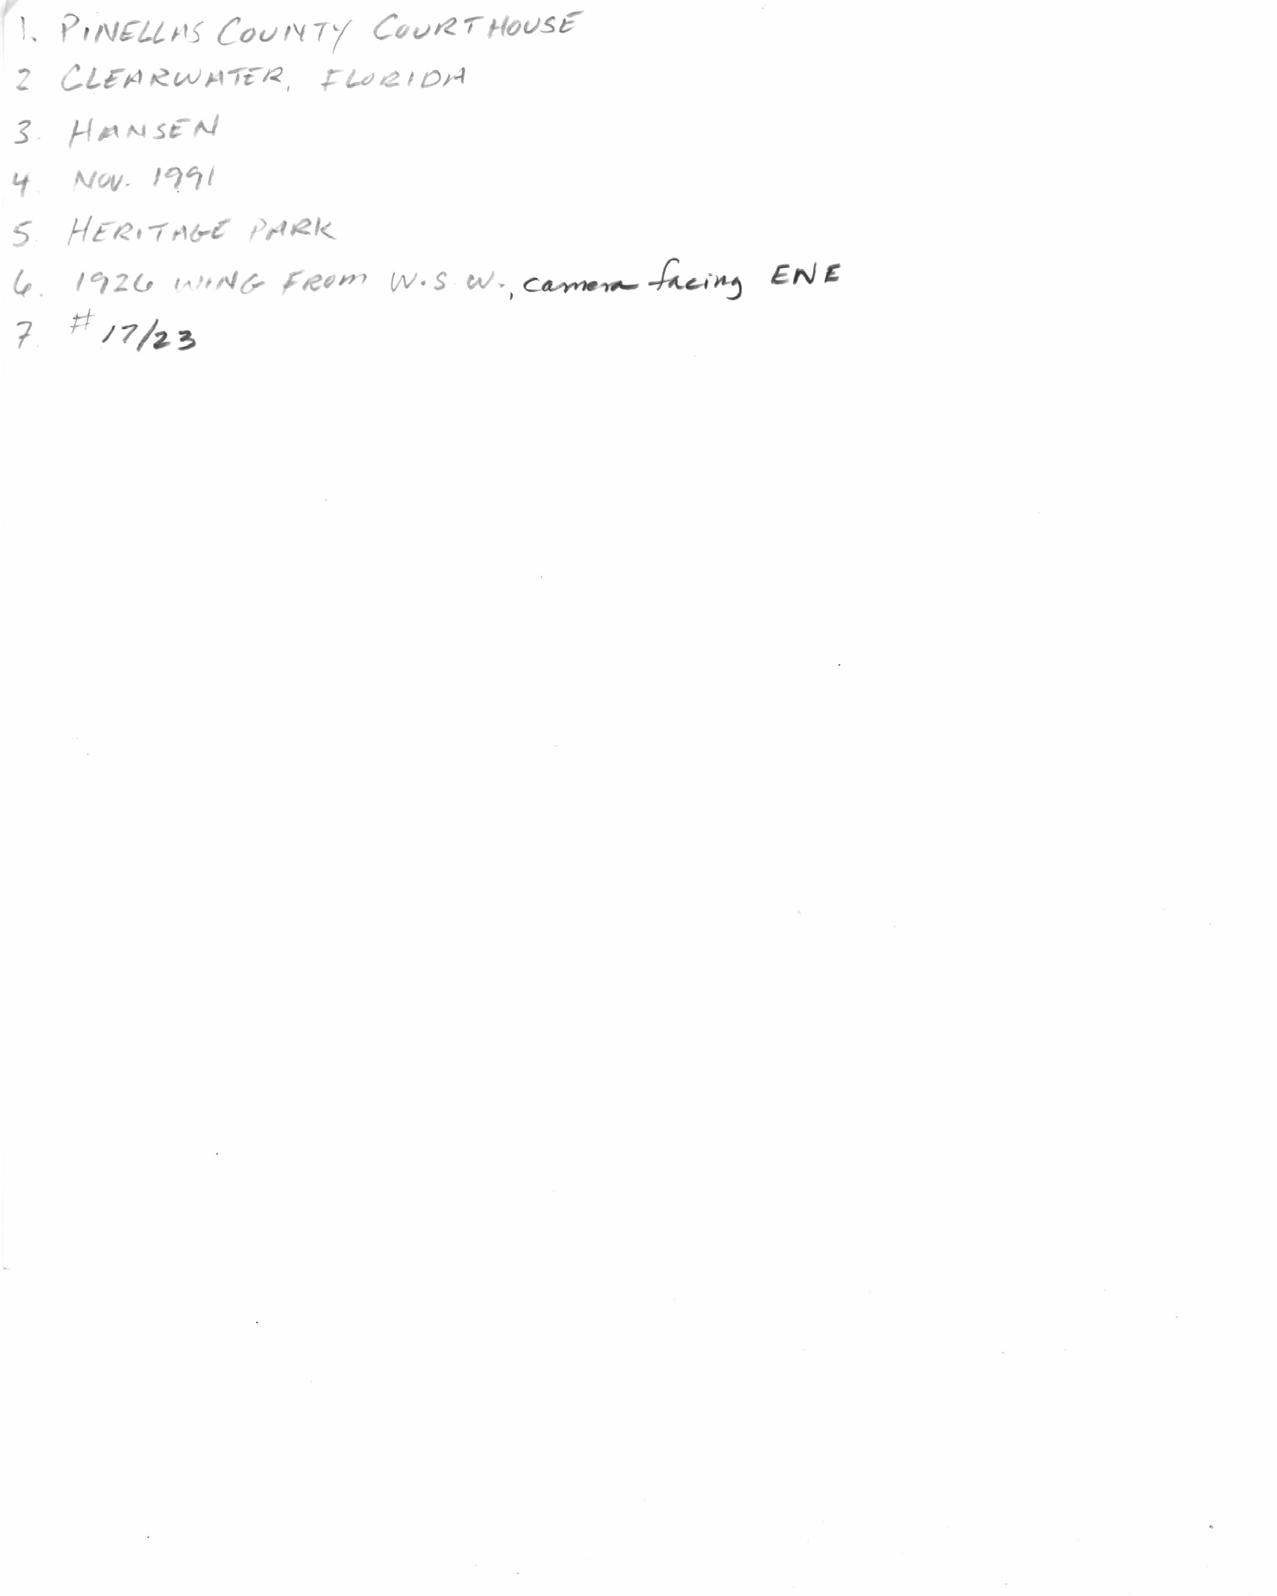 1. PINELLAS COUNTY COURTHOUSE
2 CLEARWATER, FLORIDA
3. HANSEN
4 NOV. 1991
5. HERITAGE PARK
6. 1926 WING FROM W.S.W., camera facing ENE
7. # 17/23